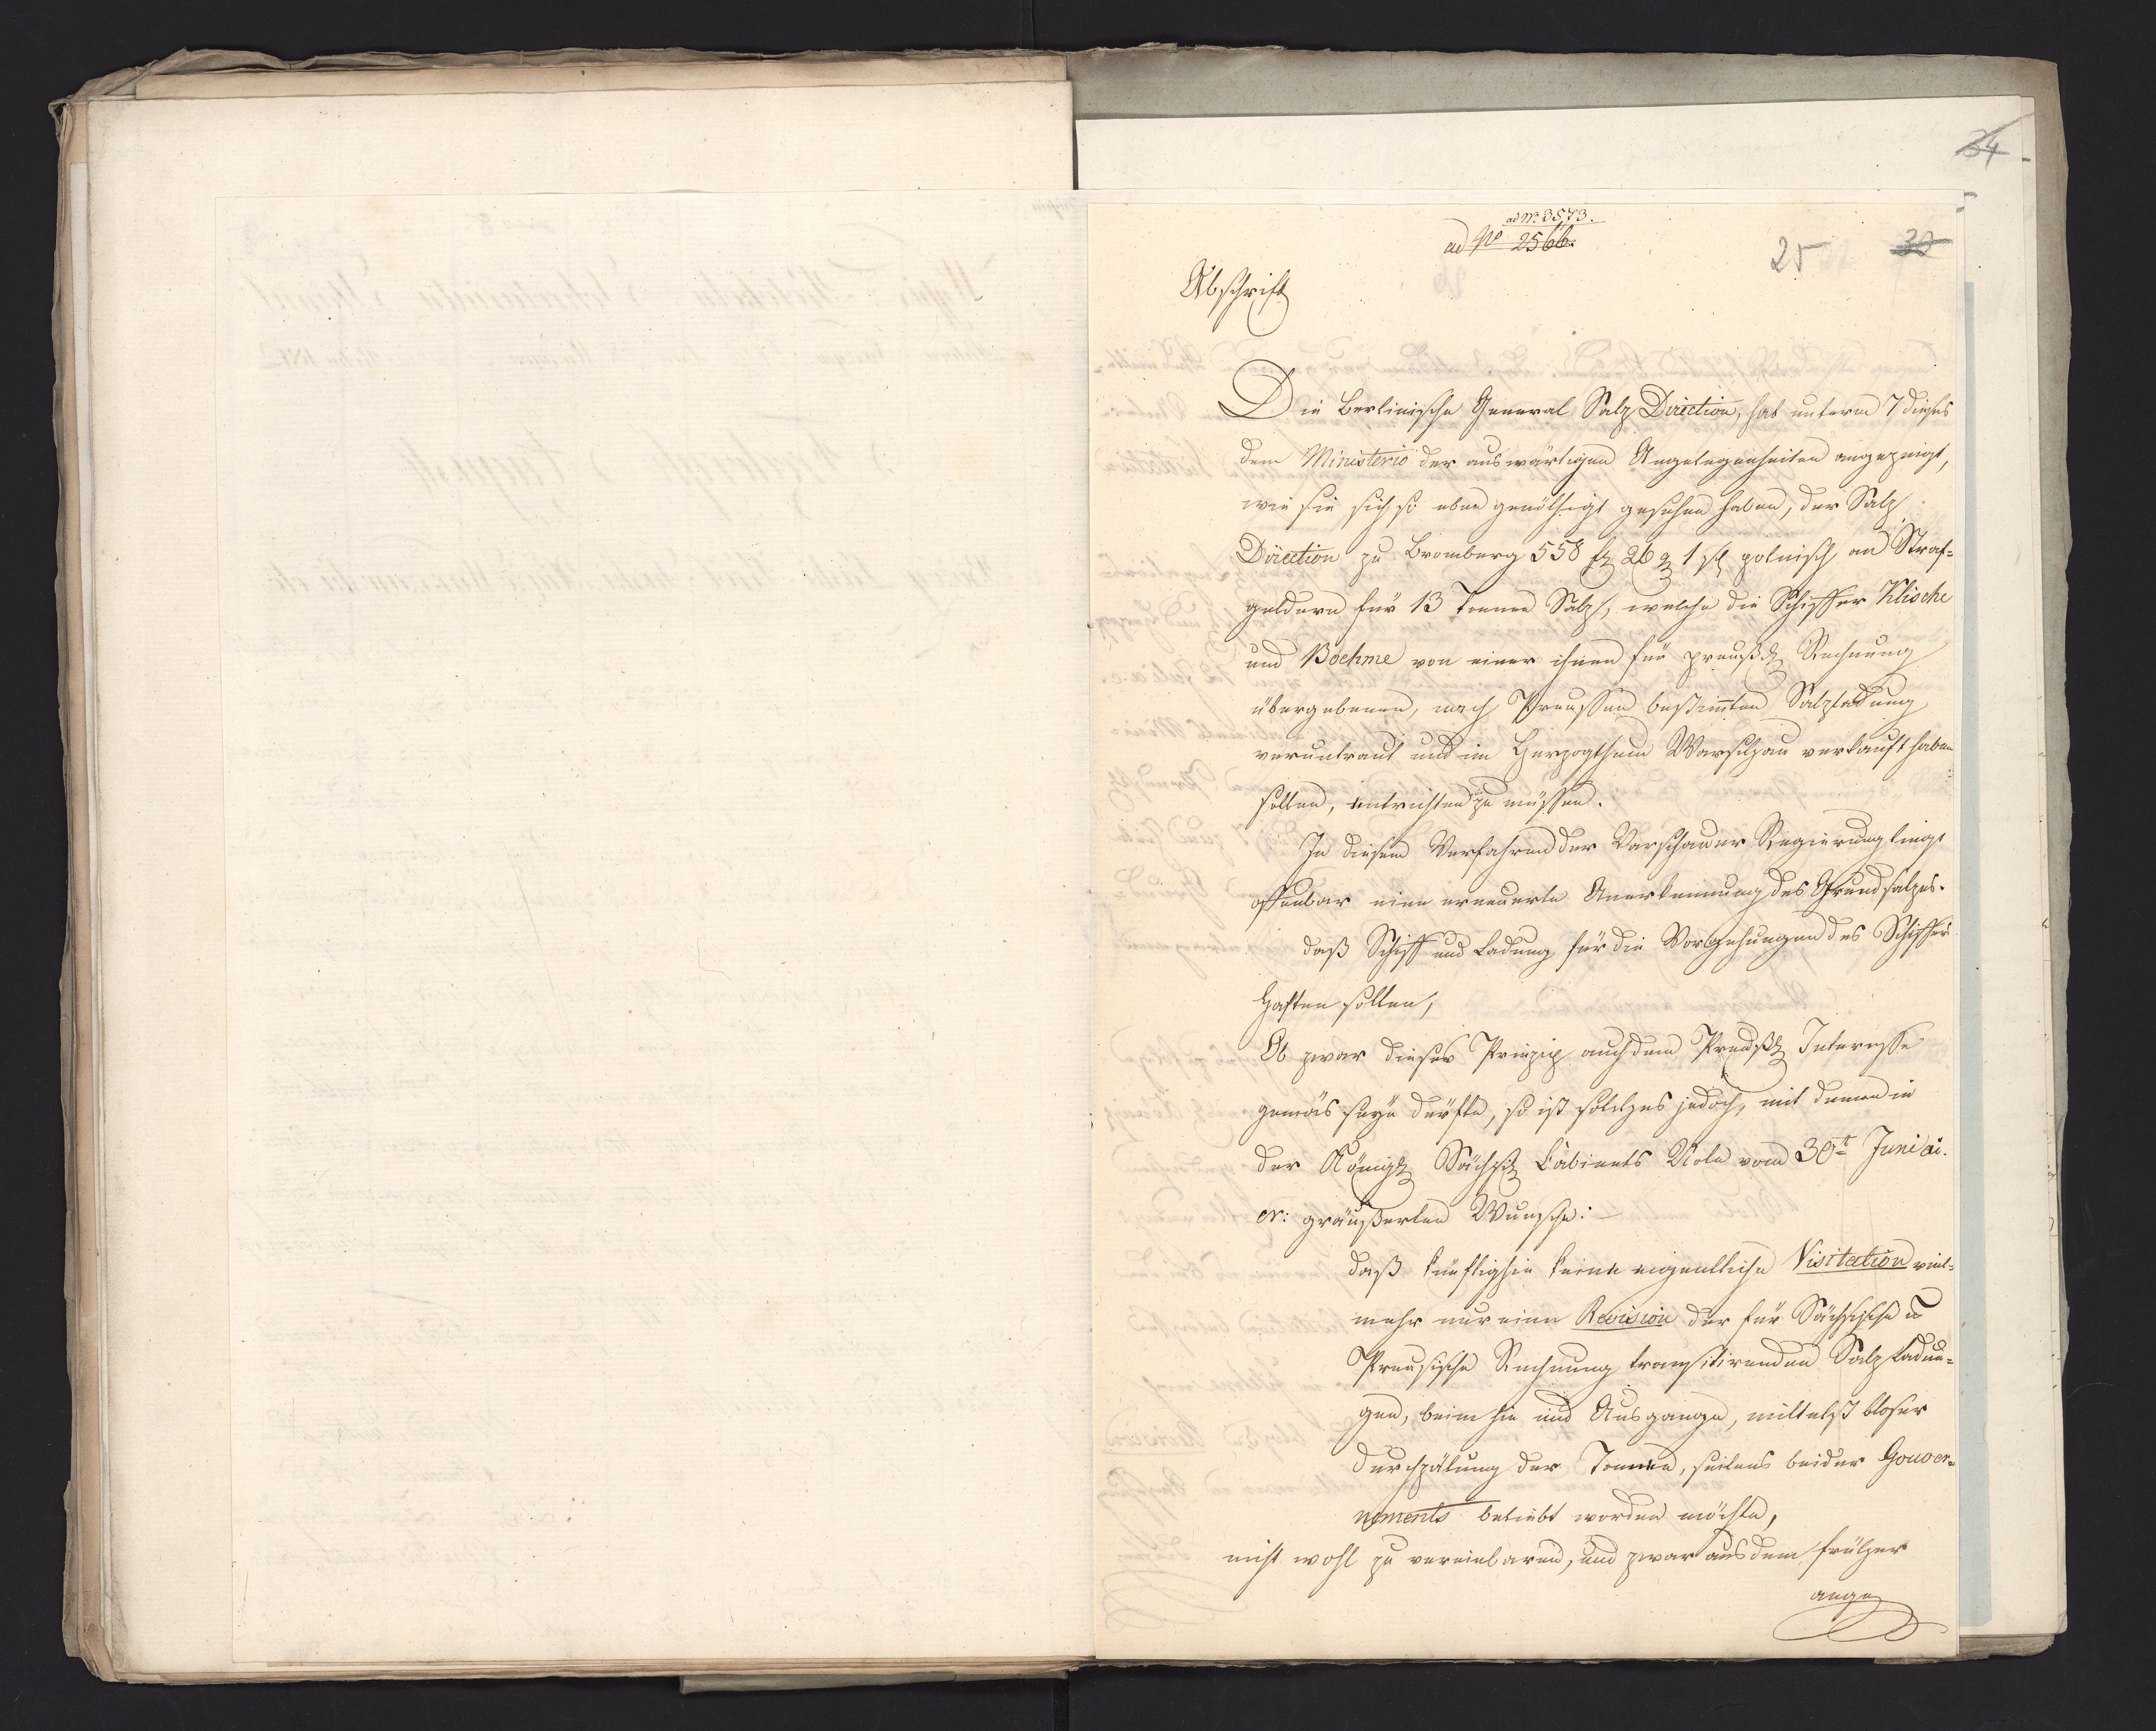 34
ad Nº 3573.
ad Nº 2566.
25
30
Abschrift
Die Berlinische General Salz Direction, hat unterm 7 dieses
dem Ministerio der auswärtigen Angelegenheiten angezeigt,
wie sie sich so eben genöthigt gesehen haben, der Salz
Direction zu Bromberg 558 f 26 g 1 polnisch an Straf=
geldern für 13 Tonnen Salz, welche die Schiffer Klische
und Boehme von einer ihnen für preuß Rechnung
übergebenen, nach Preussen bestimten Salzladung
veruntraut und im Herzogthum Warschau verkauft haben
sollen, entrichten zu müssen.
In diesem Verfahren der Warschauer Regierung liegt
offenbar eine erneuerte Anerkennung des Grundsatzes.
daß Schiff und Ladung für die Vergehungen des Schiffers
haften sollen,
Ob zwar dieses Prinzip auch dem Preuß Interesse
gemäs seyn dürfte, so ist solches jedoch, mit denen in
der Königl Sächß Cabinets Note vom 30t Juni a.
cr: geäußerten Wunsche:
daß künftighin keine eigentliche Visitation viel=
mehr nur eine Revision der für Sächsische u
Preusische Rechnung transitirenden Salz Ladun=
gen, beim Ein und Ausgange, mittelst bloser
Durchzälung der Tonnen, seitens beider Gouver=
nements beliebt worden möchte,
nicht wohl zu vereinbaren, und zwar aus dem früher
ange